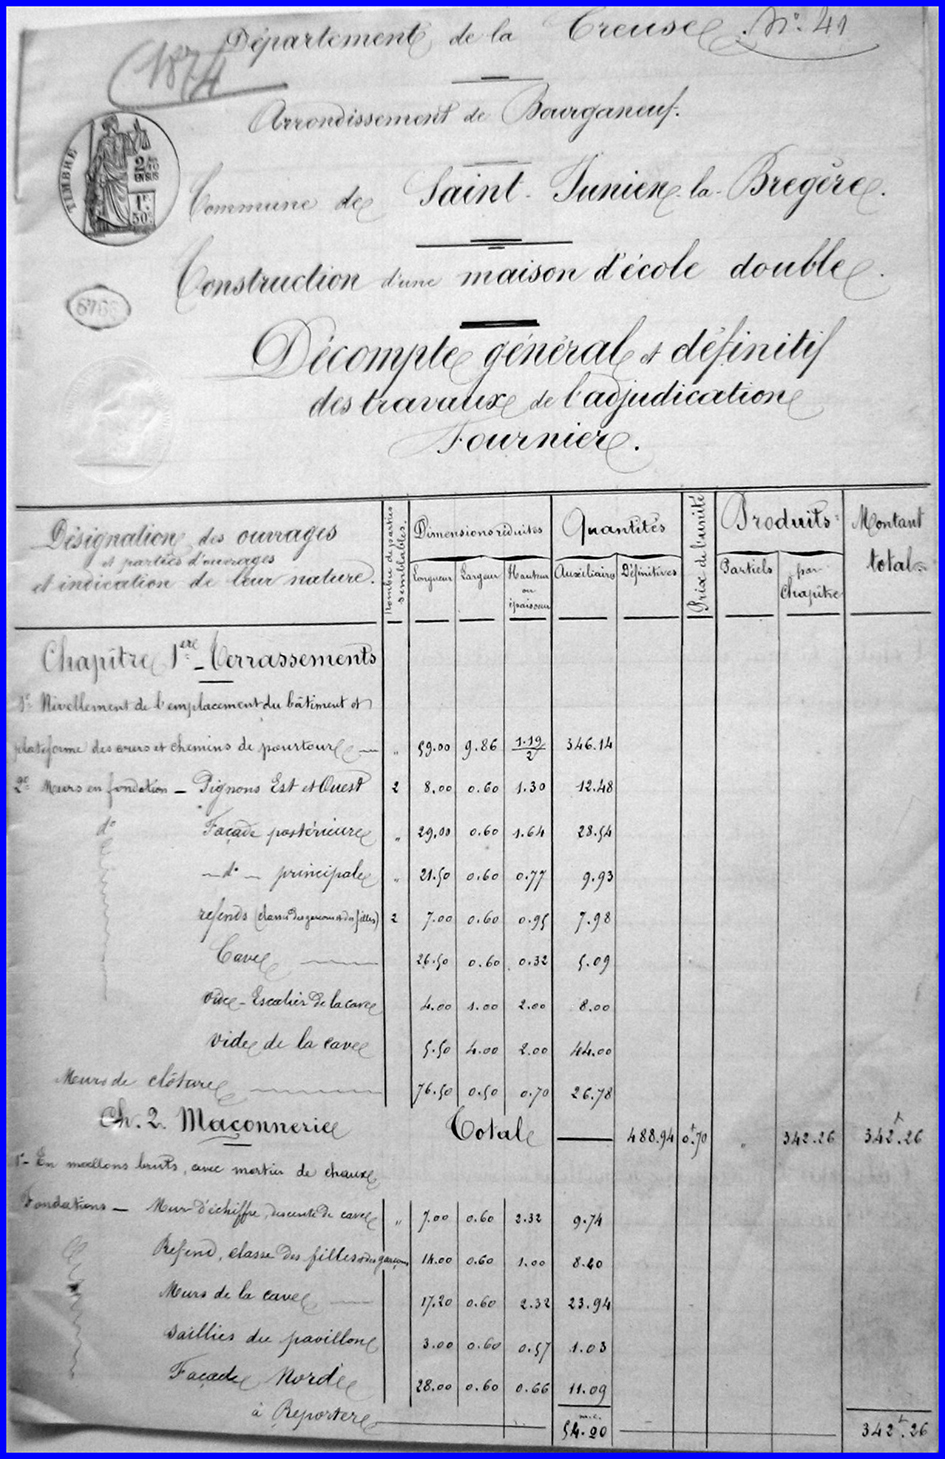 Département de la Creuse. N° 41
1874
Arrondissement de Bourganeuf.
TIMBRE
2/10 EN SUS
1F. 50C.
Commune de Saint-Junien-la-Bregère.
Construction d'une maison d'école double.
Décompte général et définitif
des travaux de l'adjudication
Fournier.
Désignation des ouvrages et parties d'ouvrages et indication de leur nature. Nombre de parties semblables. Dimensions réduites Quantités Prix de l'unité Produits Montant total
Longueur Largeur Hauteur ou épaisseur Auxiliaires Définitives Partiels par Chapitre
Chapitre 1ere - Terrassements
1° Nivellement de l'emplacement du bâtiment et
plateforme des cours et chemins de pourtour — " 59.00 9.86 1.19/2 346.14
2° Murs en fondation — Pignons Est et Ouest 2 8.00 0.60 1.30 12.48
d° Façade postérieure " 29.00 0.60 1.64 28.54
— d° — principale " 21.50 0.60 0.77 9.93
refends (classe des garçons et des filles) 2 7.00 0.60 0.95 7.98
Cave — 26.50 0.60 0.32 5.09
vide - Escalier de la cave 4.00 1.00 2.00 8.00
vide de la cave 5.50 4.00 2.00 44.00
Murs de clôture — 76.50 0.50 0.70 26.78
Ch. 2. Maçonnerie Total — 488.94 0f.70 " 342.26 342f.26
1° - En moellons bruts, avec mortier de chaux
Fondations — Mur d'échiffre, descente de cave " 7.00 0.60 2.32 9.74
Refend, classe des filles et des garçons 14.00 0.60 1.00 8.40
Murs de la cave — 17.20 0.60 2.32 23.94
Saillies du pavillon 3.00 0.60 0.57 1.03
Façade Nord 28.00 0.60 0.66 11.09
à Reporter — m.c. 54.20 — 342f.26